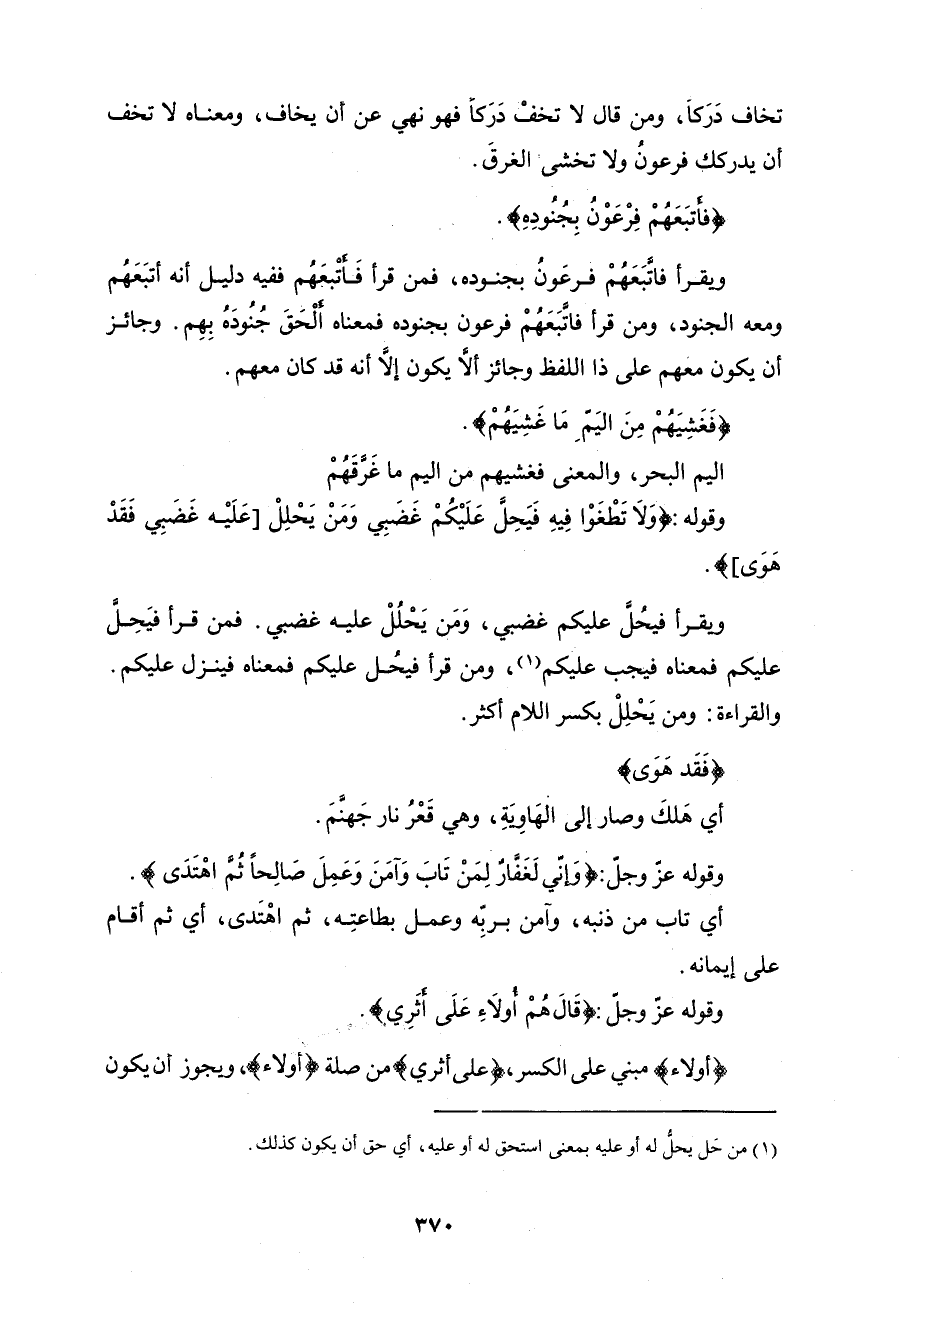 تخاف دَرَكاً، ومن قال لا تخفْ دَرَكاً فهو نهي عن أن يخاف، ومعناه لا تخف
أن يدركك فرعونُ ولا تخشى الغرقَ.
﴿فَأَتبَعَهُمْ فِرْعَوْنُ بِجُنُودِهِ﴾.
ويقرأ فاتَّبَعَهُمْ فرعونُ بجنوده، فمن قرأ فَأَتْبَعَهُم ففيه دليل أنه أتبَعَهُم
ومعه الجنود، ومن قرأ فاتَّبَعَهُمْ فرعون بجنوده فمعناه أَلْحَقَ جُنُودَهُ بِهِم. وجائز
أن يكون معهم على ذا اللفظ وجائز ألَّا يكون إلَّا أنه قد كان معهم.
﴿فَغَشِيَهُمْ مِنَ اليَمِّ مَا غَشِيَهُمْ﴾.
اليم البحر، والمعنى فغشيهم من اليم ما غَرَّقَهُمْ
وقوله:﴿وَلَا تَطْغَوْا فِيهِ فَيَحِلَّ عَلَيْكُمْ غَضَبِي وَمَنْ يَحْلِلْ [عَلَيْه غَضَبِي فَقَدْ
هَوَى]﴾.
ويقرأ فيحُلَّ عليكم غضبي، وَمَن يَحْلُلْ عليه غضبي. فمن قرأ فيَحِلَّ
عليكم فمعناه فيجب عليكم(١)، ومن قرأ فيحُل عليكم فمعناه فينزل عليكم.
والقراءة: ومن يَحْلِلْ بكسر اللام أكثر.
﴿فَقَد هَوَى﴾
أي هَلكَ وصار إلى الهَاوِيَةِ، وهي قَعْرُ نار جَهنَّمَ.
وقوله عزّ وجلّ:﴿وَإِنّي لَغَفَّارٌ لِمَنْ تَابَ وَآمَنَ وَعَمِلَ صَالِحاً ثُمَّ اهْتَدَى﴾.
أي تاب من ذنبه، وآمن بربِّه وعمل بطاعتِه، ثم اهْتَدى، أي ثم أقام
على إيمانه.
وقوله عزّ وجلّ:﴿قَالَ هُمْ أُولَاءِ عَلَى أَثَرِي﴾.
﴿أولاء﴾ مبني على الكسر،﴿على أثري﴾من صلة ﴿أولاء﴾، ويجوز أن يكون
(١) من حَل يحلُّ له أو عليه بمعنى استحق له أو عليه، أي حق أن يكون كذلك.
٣٧٠